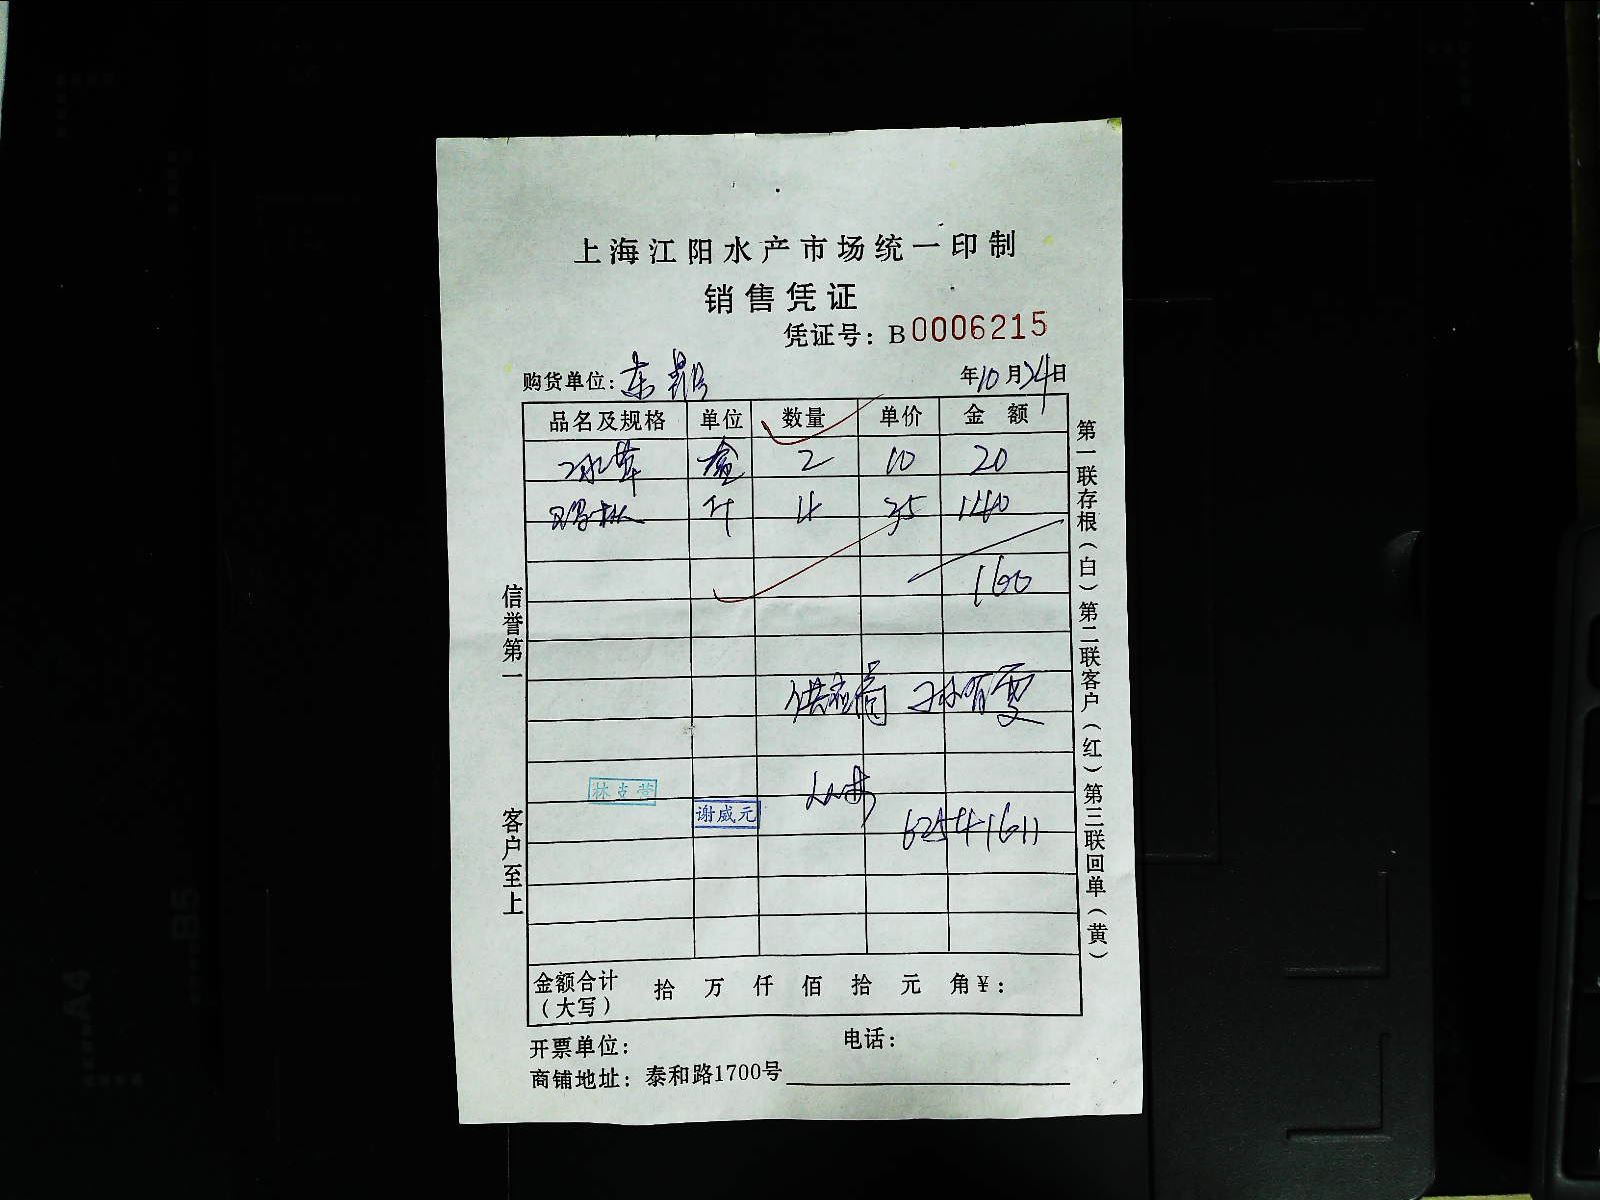 上海江阳水产市场统一印制
销售凭证
凭证号：B0006215
购货单位：东 年10月24日
品名及规格 单位 数量 单价 金额
冰草 盒 2 10 20
鸡枞 斤 4 35 140
160
供应商 孙有雯
62541611
林支营
谢威元
金额合计（大写） 拾 万 仟 佰 拾 元 角 ¥：
开票单位： 电话：
商铺地址：泰和路1700号
信誉第一 客户至上
第一联存根（白）第二联客户（红）第三联回单（黄）